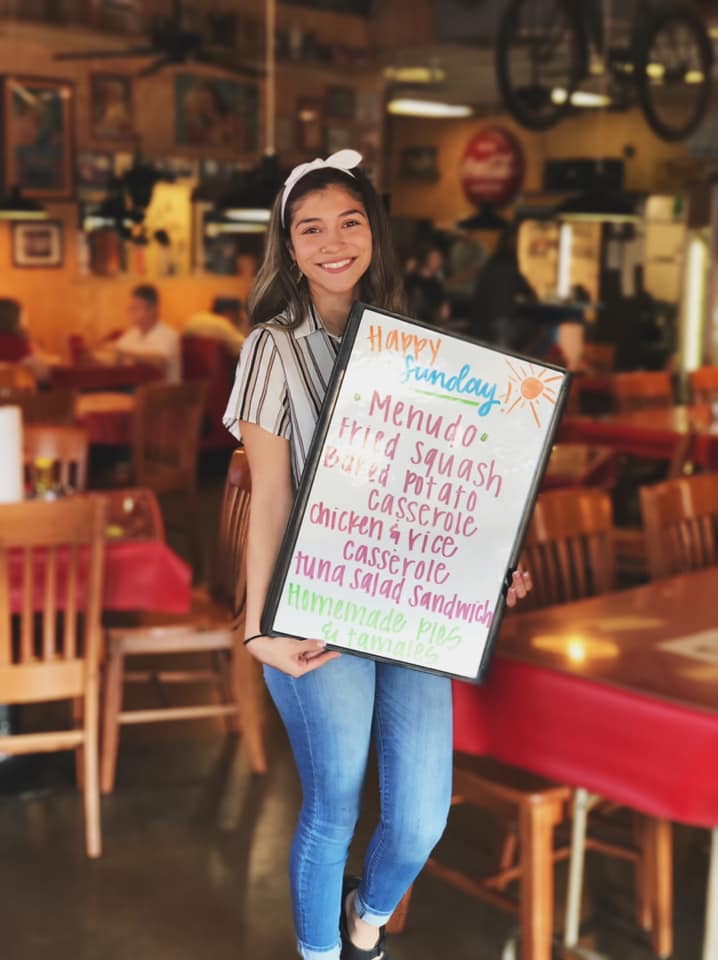 Happy
Sunday!
Menudo
Fried Squash
Baked Potato
Casserole
Chicken & rice
Casserole
tuna salad sandwich
Homemade Pies
& tamales